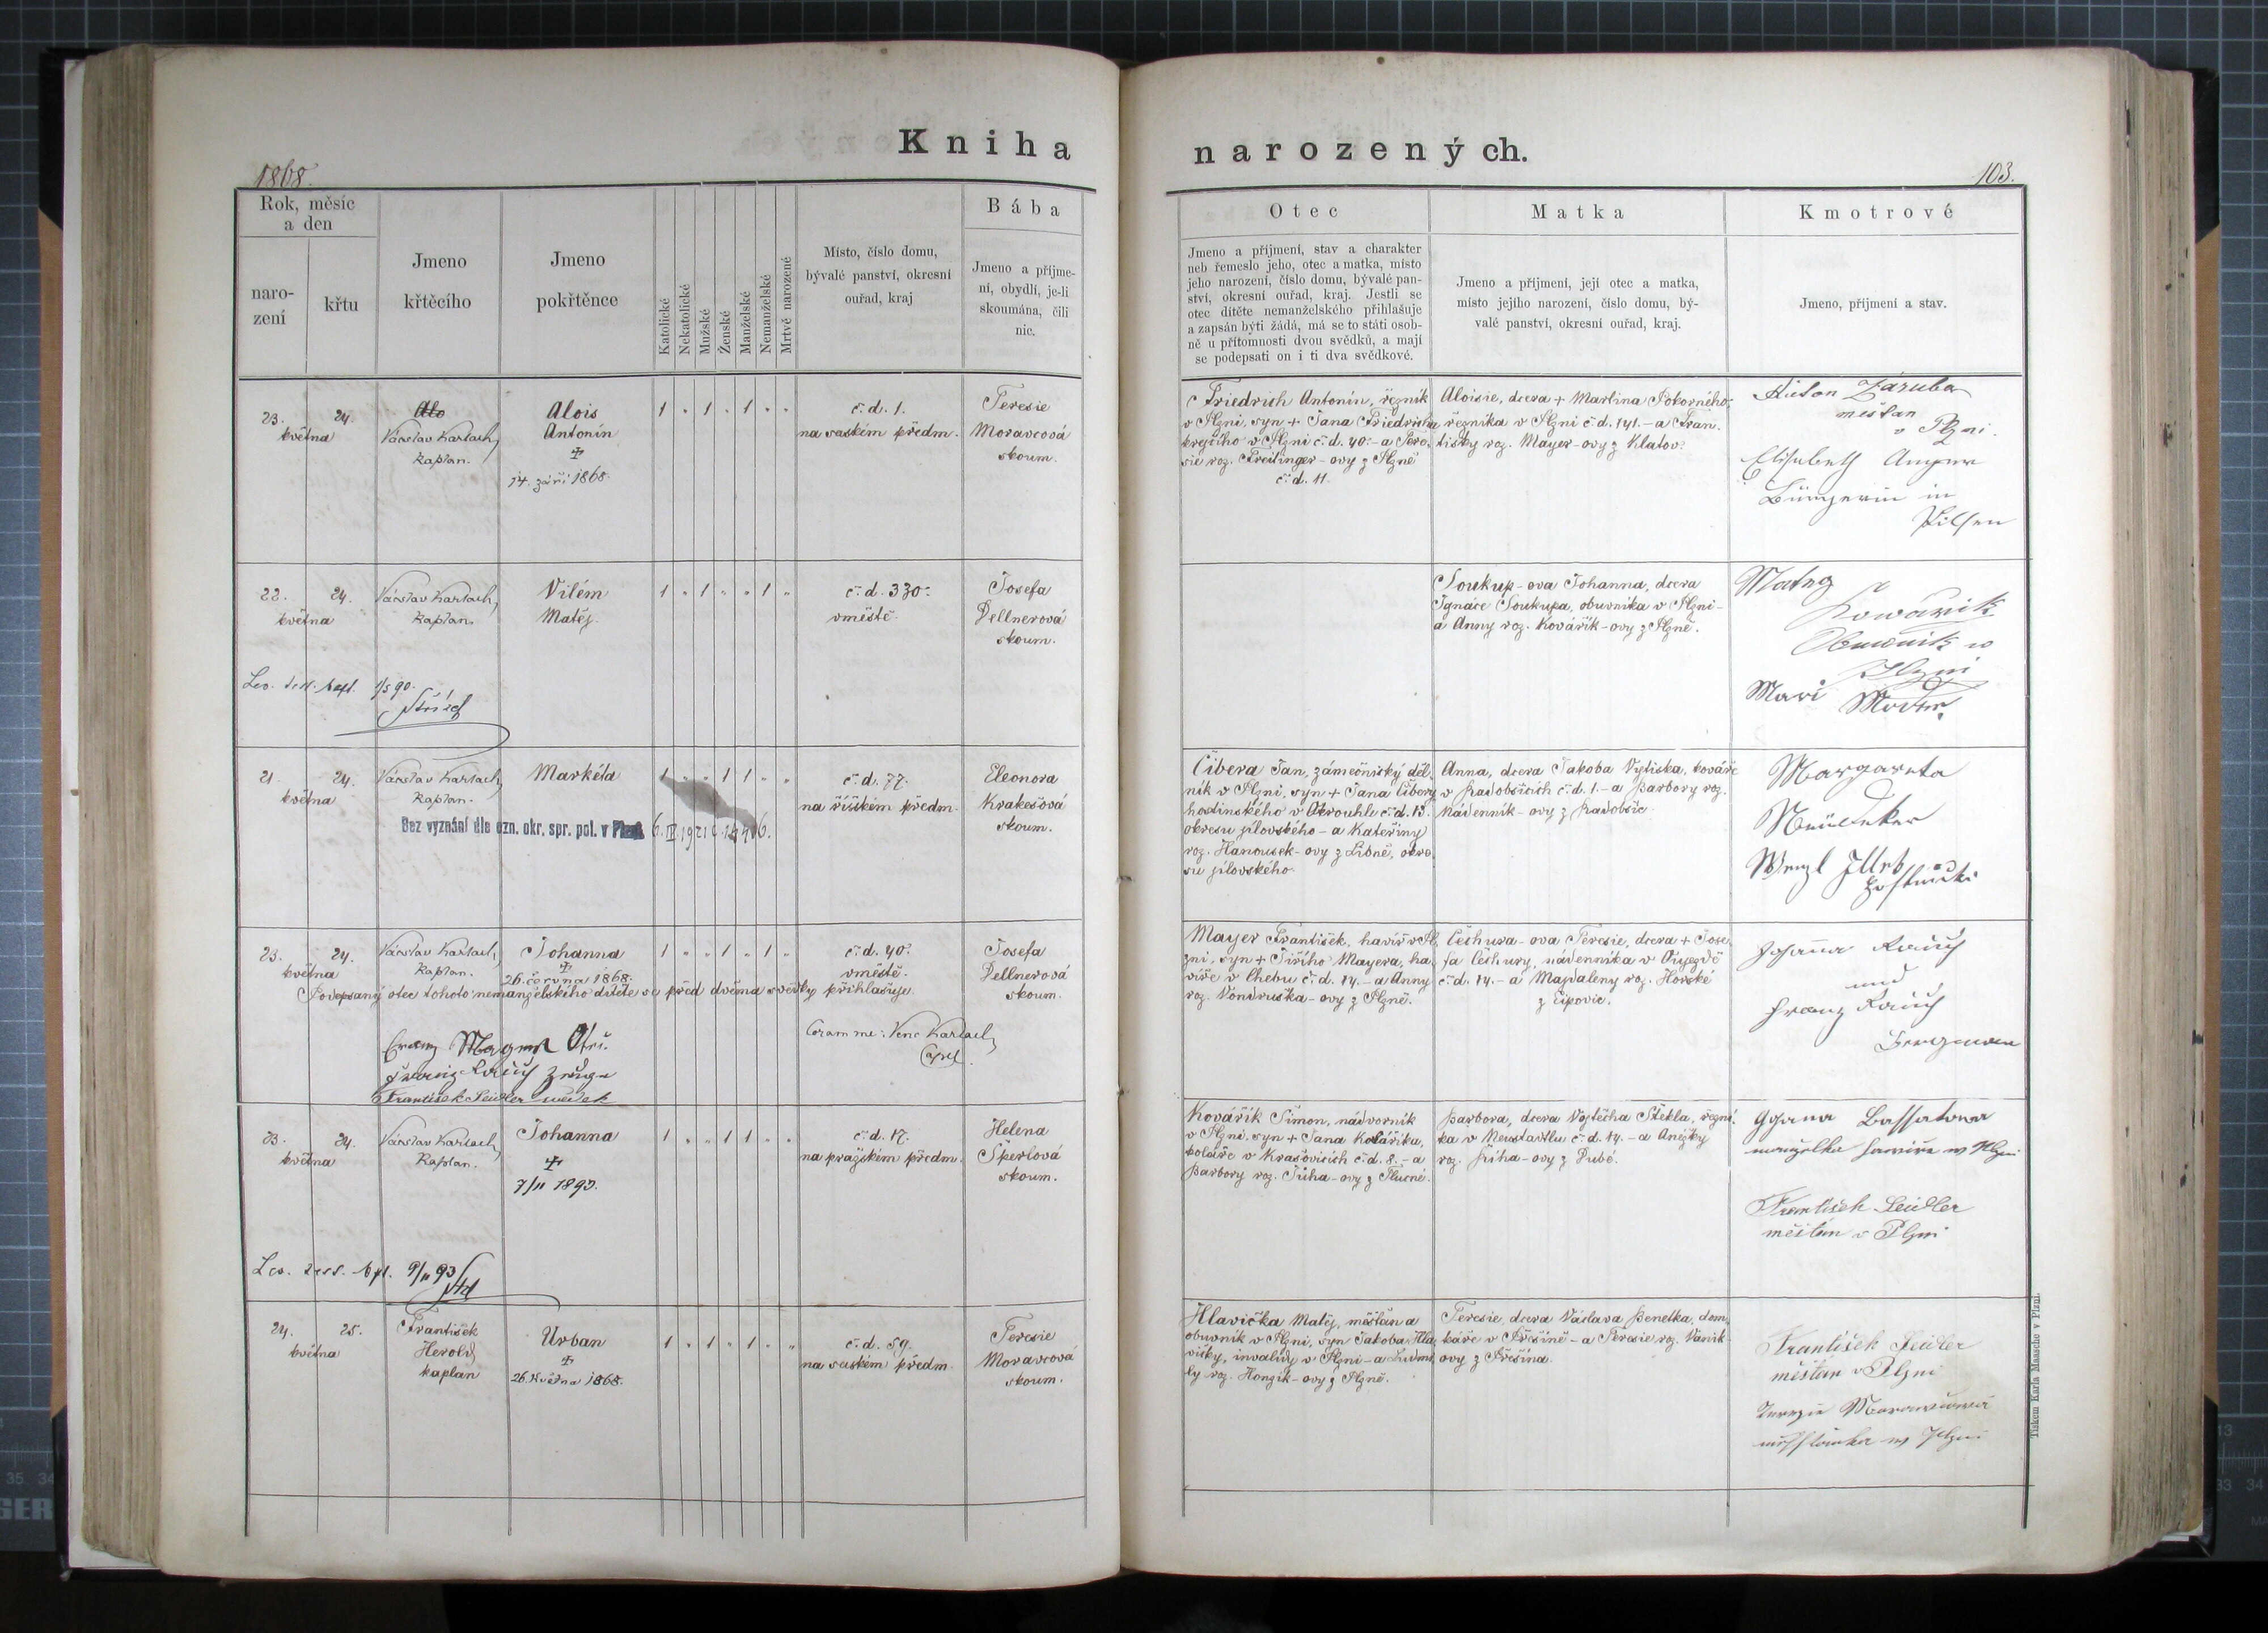 Kniha
narozených.
1868.
103.
Rok, měsíc
a den
naro-
zení
křtu
Jmeno
křtěcího
Jmeno
pokřtěnce
Katolické
Nekatolické
Mužské
Ženské
Manželské
Nemanželské
Mrtvě narozené
Místo, číslo domu,
bývalé panství, okresní
ouřad, kraj
Bába
Jmeno a příjme-
ní, obydlí, je-li
skoumána, čili
nic.
Otec
Jmeno a příjmení, stav a charakter
neb řemeslo jeho, otec a matka, místo
jeho narození, číslo domu, bývalé pan-
ství, okresní ouřad, kraj. Jestli se
otec dítěte nemanželského přihlašuje
a zapsán býti žádá, má se to státi osob-
ně u přítomnosti dvou svědků, a mají
se podepsati on i ti dva svědkové.
Matka
Jmeno a příjmení, její otec a matka,
místo jejího narození, číslo domu, bý-
valé panství, okresní ouřad, kraj.
Kmotrové
Jmeno, příjmení a stav.
23. 24.
května
Alo
Václav Karlach,
kaplan.
Alois
Antonín
14. září 1868.
1 " 1 " 1 " "
č. d. 1.
na saském předm.
Teresie
Moravcová
skoum.
Friedrich Antonín, řezník
v Plzni, syn + Jana Friedricha
krejčího v Plzni č. d. 40. - a Tere-
sie roz. Freilinger-ovy z Plzně
č. d. 11.
Aloisie, dcera + Martina Pokorného,
řezníka v Plzni č. d. 141. - a Fran-
tišky roz. Mayer-ovy z Klatov.
Anton Záruba
mešťan
v Plzni.
Elisabeth
Bürgerin in
Pilsen
22. 24.
května
Václav Karlach,
kaplan.
Vilém
Matěj.
1 " 1 " " 1 "
č. d. 330.
v městě.
Josefa
Dellnerová
skoum.
Soukup-ova Johanna, dcera
Ignáce Soukupa, obuvníka v Plzni -
a Anny roz. Kovářík-ovy z Plzně.
Matěg
Kowářik
Obuwnik w
Plzni
Mari
1/5 90.
21. 24.
května
Václav Karlach,
kaplan.
Markéta
1 " " 1 1 " "
č. d. 77.
na říšském předm.
Eleonora
Krakešová
skoum.
Bez vyznání dle ozn. okr. spr. pol. v Plzni
Čibera Jan, zámečnický děl-
ník v Plzni, syn + Jana Čibery
hostinského v Okrouhlu č. d. 13.
okresu jílovského - a Kateřiny
roz. Hanousek-ovy z Libně, okre-
su jílovského.
Anna, dcera Jakoba Vytiska, kováře
v Radobčicích č. d. 1. - a Barbory roz.
Nádenník-ovy z Radobčic.
Margareta
Wenzl
23. 24.
května
Václav Karlach,
kaplan.
Johanna
26. června 1868.
1 " " 1 " 1 "
č. d. 40.
v městě.
Josefa
Dellnerová
skoum.
Podepsaný otec tohoto nemanželského dítěte se před dvěma svědky přihlašuje.
Coram me: Venc Karlach,
Capel.
Franz Mayer
Franz Rauch Zeuge
František Seidler svědek
Mayer František, havíř v Pl-
zni, syn + Jiřího Mayera, ha-
víře v Chebu č. d. 14. - a Anny
roz. Vondruška-ovy z Plzně.
Čechura-ova Teresie, dcera + Jose-
fa Čechury, nádenníka v Oujezdě
č. d. 14. - a Majdaleny roz. Horské
z Lipovic.
Johanna Rauch
und
Franz Rauch
Bergmann
23. 24.
května
Václav Karlach,
kaplan.
Johanna
7/11 1893.
1 " " 1 1 " "
č. d. 17.
na pražském předm.
Helena
Šperlová
skoum.
9/11 93
Kovářík Šimon, nádvorník
v Plzni, syn + Jana Kováříka,
koláře v Krašovicích č. d. 8. - a
Barbory roz. Jůha-ovy z Tlucné.
Barbora, dcera Vojtěcha Štekla, řezní-
ka v Neustadtlu č. d. 14. - a Anežky
roz. Říha-ovy z Dubé.
manželka w Plzni
František Seidler
měšťan v Plzni
24. 25.
května
František
Herold,
kaplán
Urban
26. května 1868.
1 " 1 " 1 " "
č. d. 59.
na saském předm.
Teresie
Moravcová
skoum.
Hlavička Matěj, měšťan a
obuvník v Plzni, syn Jakoba Hla-
vičky, invalidy v Plzni - a Ludmi-
ly roz. Honzík-ovy z Plzně.
Teresie, dcera Václava Benetka, dom-
káře v Přešíně - a Teresie roz. Vaník-
ovy z Přešína.
František Seidler
měšťan v Plzni
w Plzni
Tiskem Karla Maascha v Plzni.